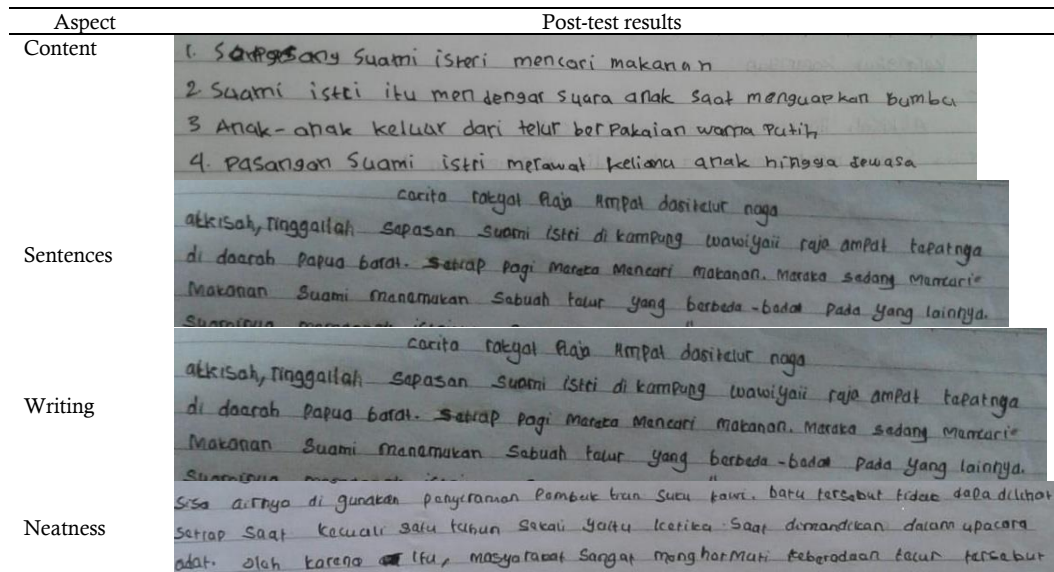 Aspect Post-test results
Content
1. Suami isteri mencari makanan
2 Suami istri itu men dengar suara anak saat menguapkan bumbu
3 Anak-anak keluar dari telur berpakaian warna putih
4. pasangan Suami istri merawat keliama anak hingga dewasa
Sentences
carita rakyat Raja Ampat dasitelur naga
alkisah, Tinggallah sapasan suami istri di kampung wawiyaii raja ampat tapatnga
di daarah Papua barat. Satiap pagi Maraka Mancari makanan. Maraka sadang Mamcari
Makanan Suami manamukan Sabuah talur yang barbada-bada Pada Yang lainnya.
Writing
carita rakyat Raja Ampat dasitelur naga
alkisah, Tinggallah sapasan suami istri di kampung wawiyaii raja ampat tapatnga
di daarah Papua barat. Satiap pagi Maraka Mancari makanan. Maraka sadang Mamcari
Makanan Suami manamukan Sabuah talur yang barbada-bada Pada Yang lainnya.
Neatness
Sisa airnya di gunakan panyiraman Suku kawi. batu tarsabut tidak dapa dilihat
Satiap Saat kacuali satu tahun Sakali yaitu katika Saat dimandikan dalam upacara
adat. olah karena itu, masyarakat sangat manghormati kabaradaan talur tarsabut